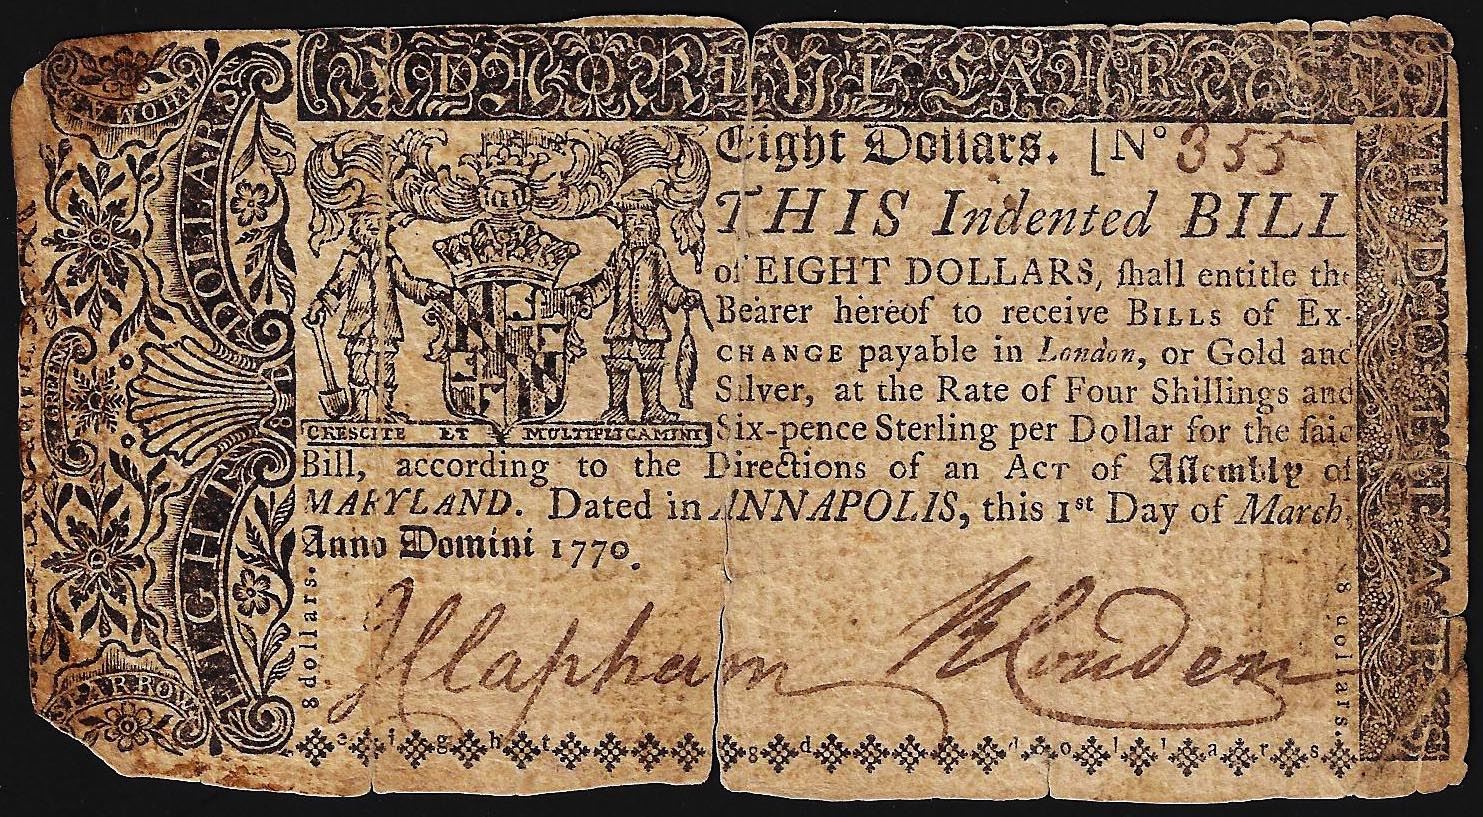 Eight Dollars. [No 355
THIS Indented BILL
of EIGHT DOLLARS, ſhall entitle the
Bearer hereof to receive BILLS of Ex-
CHANGE payable in London, or Gold and
Silver, at the Rate of Four Shillings and
Six-pence Sterling per Dollar for the ſaid
CRESCITE ET MULTIPLICAMINI
Bill, according to the Directions of an ACT of Aſſembly of
MARYLAND. Dated in ANNAPOLIS, this 1st Day of March,
Anno Domini 1770.
EIGHT DOLLARS
8 dollars.
8 dollars.
eight 8 dollars